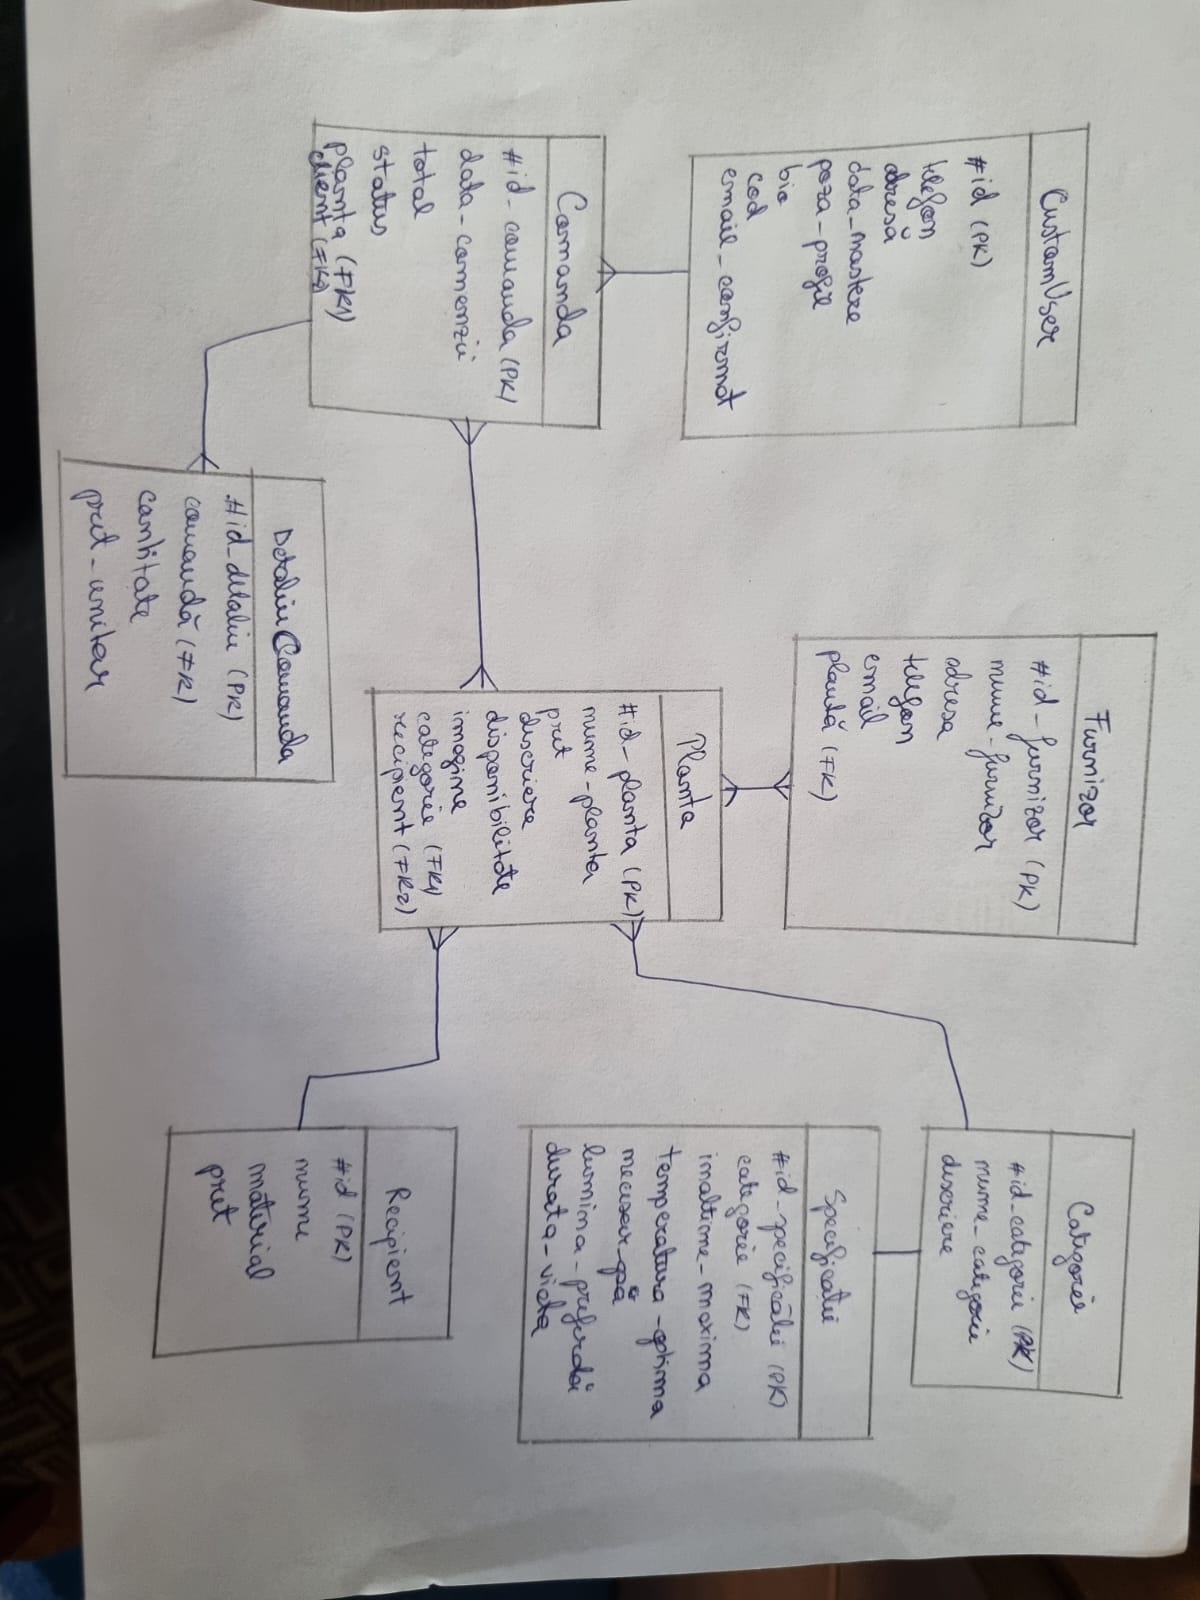 CustomUser
#id (PK)
telefon
adresă
data_nastere
poza_profil
bio
cod
email_confirmat
Furnizor
#id_furnizor (PK)
nume_furnizor
adresa
telefon
email
plantă (FK)
Categorie
#id_categorie (PK)
nume_categorie
descriere
Specificatii
#id_specificătii (PK)
categorie (FK)
inaltime_maxima
temperatura_optima
necesar_apă
lumina_preferată
durata_viata
Planta
#id_planta (PK)
nume_planta
pret
descriere
disponibilitate
imagine
categorie (FK1)
recipient (FK2)
Comanda
#id_comanda (PK)
data_comenzii
total
status
planta (FK1)
client (FK2)
Detaliu Comanda
#id_detaliu (PK)
comandă (FK)
cantitate
pret_unitar
Recipient
#id (PK)
nume
material
pret